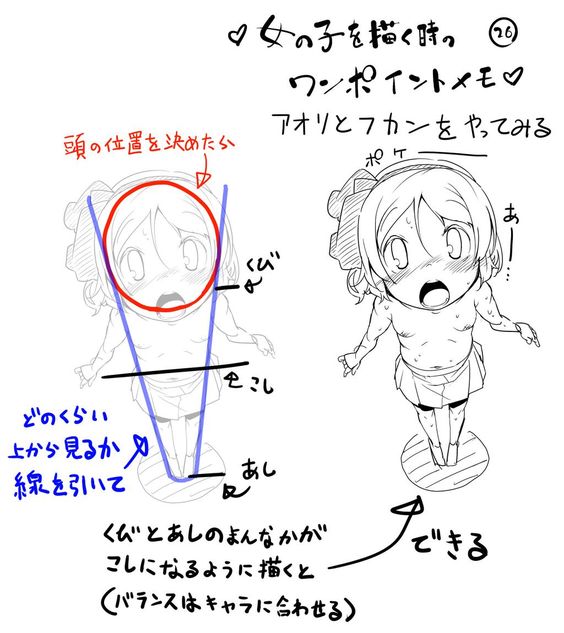 ♡女の子を描く時の ㉖
ワンポイントメモ♡
アオリとフカンをやってみる
頭の位置を決めたら
ポケー
あー…
くび
こし
どのくらい
上から見るか
線を引いて
あし
くびとあしのまんなかが
こしになるように描くと
(バランスはキャラに合わせる)
できる